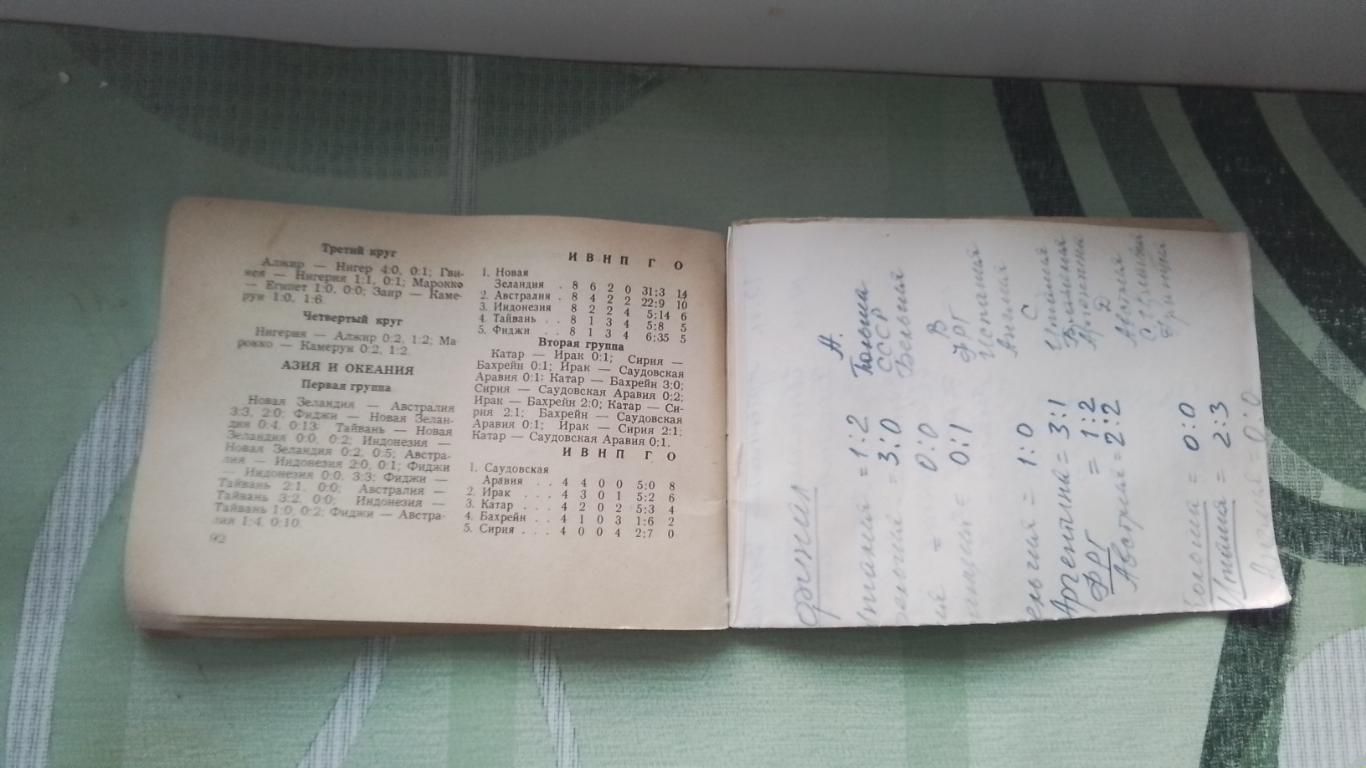 Третий круг
Алжир — Нигер 4:0, 0:1; Гви-
нея — Нигерия 1:1, 0:1; Марокко
— Египет 1:0, 0:0; Заир — Каме-
рун 1:0, 1:6.
Четвертый круг
Нигерия — Алжир 0:2, 1:2; Ма-
рокко — Камерун 0:2, 1:2.
АЗИЯ И ОКЕАНИЯ
Первая группа
Новая Зеландия — Австралия
3:3, 2:0; Фиджи — Новая Зелан-
дия 0:4, 0:13; Тайвань — Новая
Зеландия 0:0, 0:2; Индонезия —
Новая Зеландия 0:2, 0:5; Австра-
лия — Индонезия 2:0, 0:1; Фиджи
— Индонезия 0:0, 3:3; Фиджи —
Тайвань 2:1, 0:0; Австралия —
Тайвань 3:2, 0:0; Индонезия —
Тайвань 1:0, 0:2; Фиджи — Австра-
лия 1:4, 0:10.
92
И В Н П Г О
1. Новая
Зеландия . 8 6 2 0 31:3 14
2. Австралия . 8 4 2 2 22:9 10
3. Индонезия 8 2 2 4 5:14 6
4. Тайвань . . 8 1 3 4 5:8 5
5. Фиджи . . 8 1 3 4 6:35 5
Вторая группа
Катар — Ирак 0:1; Сирия —
Бахрейн 0:1; Ирак — Саудовская
Аравия 0:1; Катар — Бахрейн 3:0;
Сирия — Саудовская Аравия 0:2;
Ирак — Бахрейн 2:0; Катар — Си-
рия 2:1; Бахрейн — Саудовская
Аравия 0:1; Ирак — Сирия 2:1;
Катар — Саудовская Аравия 0:1.
И В Н П Г О
1. Саудовская
Аравия . . 4 4 0 0 5:0 8
2. Ирак . . . 4 3 0 1 5:2 6
3. Катар . . . 4 2 0 2 5:3 4
4. Бахрейн . . 4 1 0 3 1:6 2
5. Сирия . . . 4 0 0 4 2:7 0
финал
= 1:2
= 3:0
= 0:0
= 0:1
ельгия = 1:0
Аргентина = 3:1
ФРГ = 1:2
Австрия = 2:2
= 0:0
= 2:3
= 0:0
А.
Польша
СССР
Бельгия
В
ФРГ
Испания
Англия
С
Италия
Бразилия
Аргентина
Д
Австрия
С. Ирландия
Франция